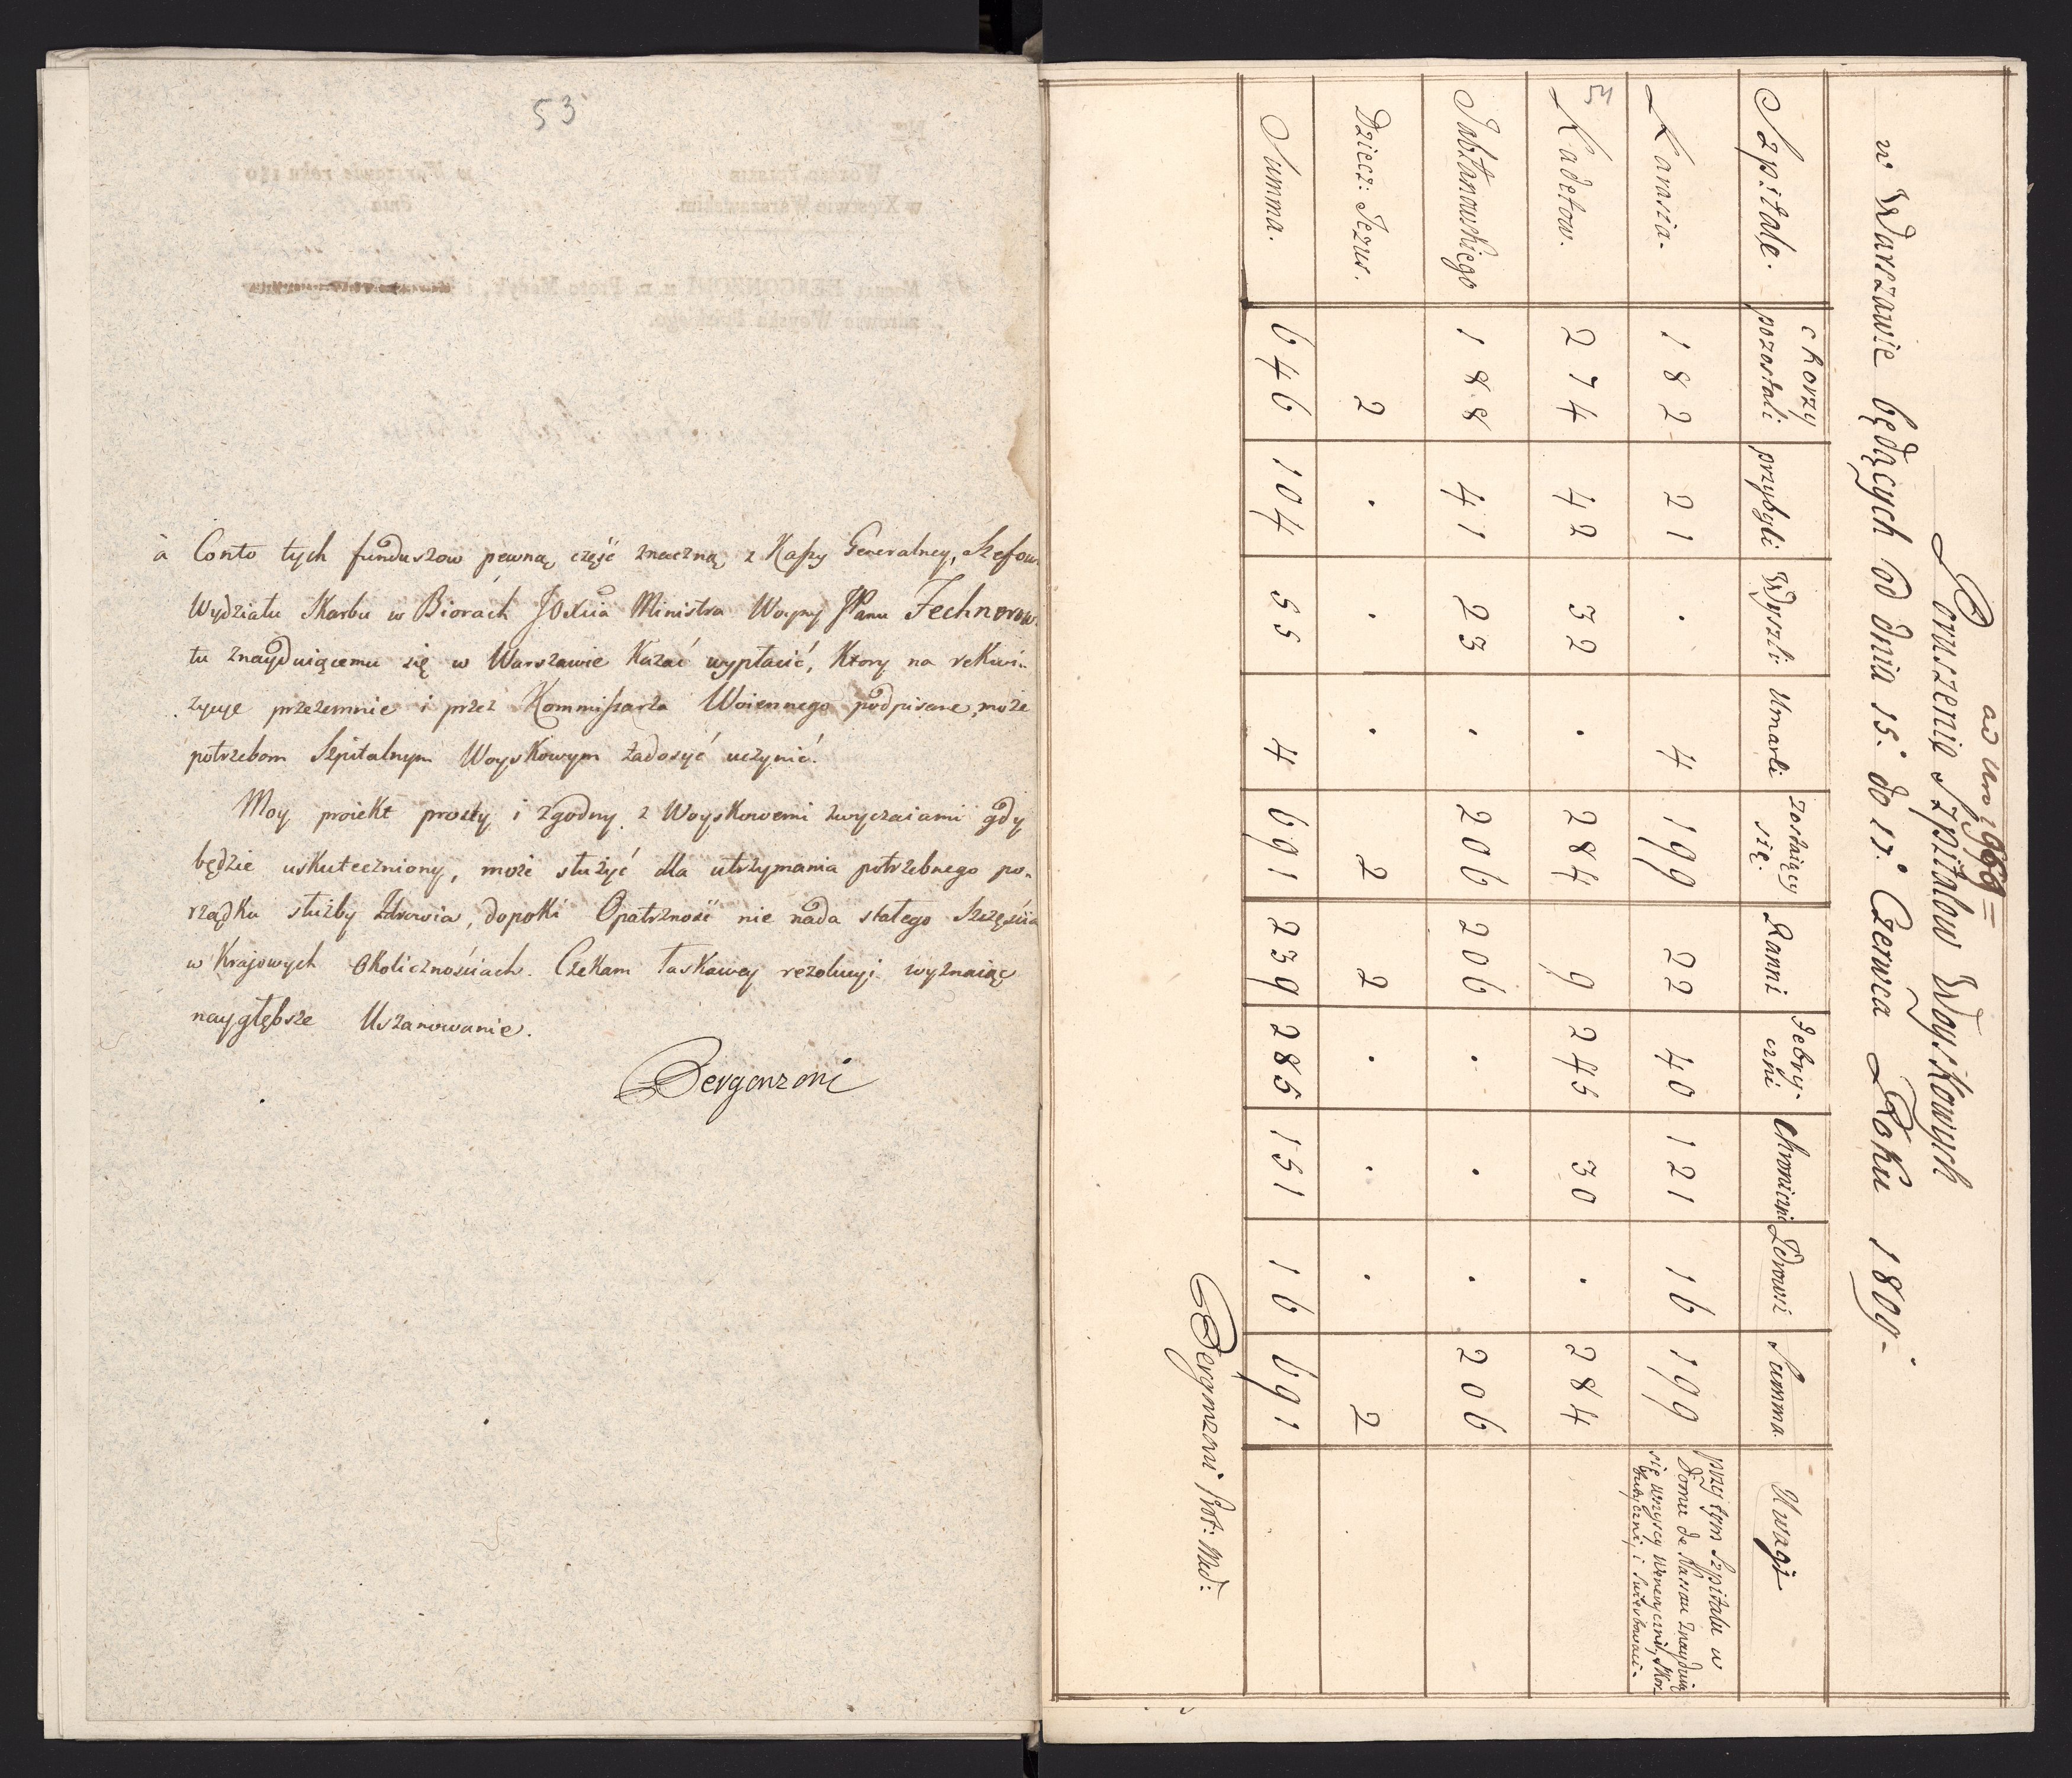 53
à Conto tych funduszow pewną część znaczną z Kassy Generalney, Szefow
Wydziału Skarbu w Biorach JOXcia Ministra Woyny JPanu Fechnerow
tu znayduiącemu się w Warszawie Kazać wypłacić, Ktory na reKwi-
zycye przezemnie i przez Kommissarza Woiennego podpisane, może
potrzebom Szpitalnym WoysKowym zadosyć uczynić.
Moy proieKt prosty i zgodny z Woyskowemi zwyczaiami gdy
będzie uskuteczniony, może służyć dla utrzymania potrzebnego po-
rządku służby Zdrowia, dopoki Opatrzność nie nada stałego Szczęścia
w Krajowych OKolicznościach. CzeKam łasKawey rezolucyi wyznaiąc
naygłębsze Uszanowanie.
Bergonzoni
54
ad Nro 1969=
Poruszenie Szpitalow Woyskowych
w Warszawie będących od dnia 15. do 17. Czerwca Roku 1809.-
Szpitale. chorzy pozostali przybyli Wyszli Umarli Zostaiący się. Ranni Febry-czni Chroniczni Zdrowi Summa. Uwagi
Karasia. 182 21 . 4 199 22 40 121 16 199 przy tym Szpitalu w
Domu de Nassau Znayduią
się wszyscy Wenerycznii, Skor-
butyczni, i Swierzbowaci.
Kadetow. 274 42 32 . 284 9 245 30 . 284
Jabłonowskiego 188 41 23 . 206 206 . . . 206
Dziecz: Jezus. 2 . . . 2 2 . . . 2
Summa. 646 104 55 4 691 239 285 151 16 691
Bergonzoni Prot: Med: